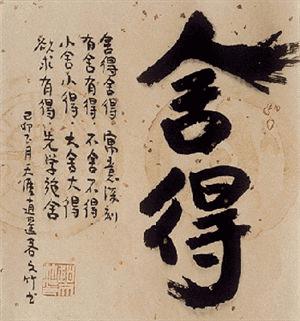 舍得
舍得舍得 寓意深刻
有舍有得 不舍不得
小舍小得 大舍大得
欲求有得 先学施舍
己卯月天涯逍遥客文竹书